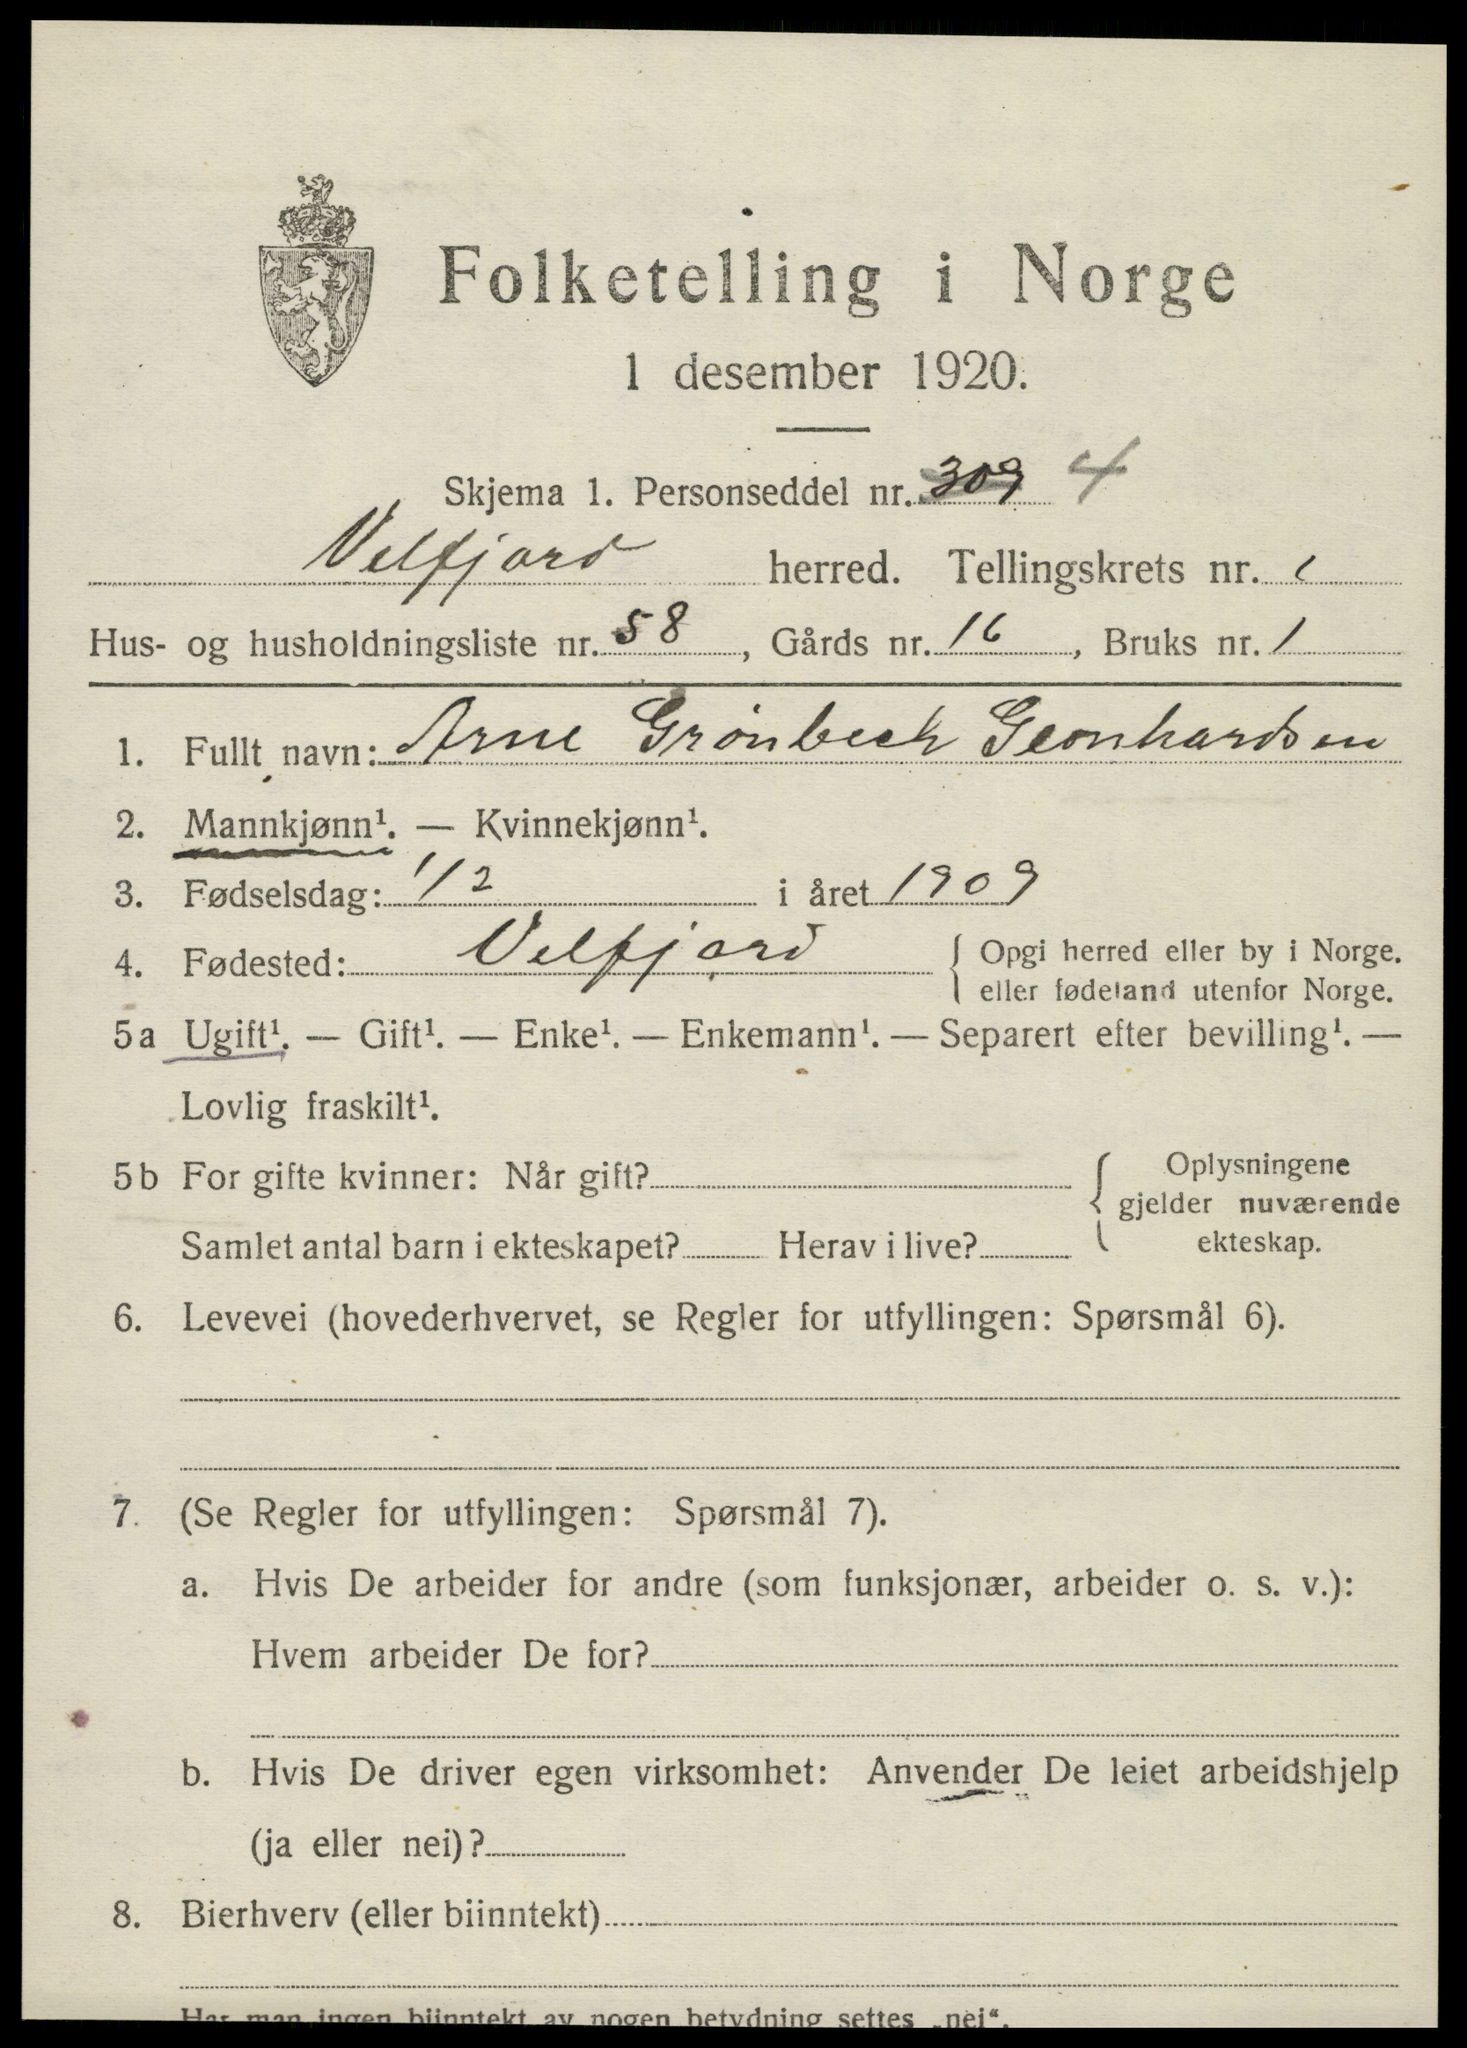 Folketelling i Norge
1 desember 1920.
Skjema 1. Personseddel nr. 309 4
Velfjord herred. Tellingskrets nr. 1
Hus- og husholdningsliste nr. 58, Gårds nr. 16, Bruks nr. 1
1. Fullt navn: Arne Grönbeck Leonhardsen
2. Mannkjønn¹. — Kvinnekjønn¹.
3. Fødselsdag: 1/2 i året 1909
4. Fødested: Velfjord { Opgi herred eller by i Norge.
eller fødeland utenfor Norge.
5a Ugift¹. — Gift¹. — Enke¹. — Enkemann¹. — Separert efter bevilling¹. —
Lovlig fraskilt¹.
5b For gifte kvinner: Når gift? { Oplysningene
gjelder nuværende
Samlet antal barn i ekteskapet? Herav i live? ekteskap.
6. Levevei (hovederhvervet, se Regler for utfyllingen: Spørsmål 6).
7. (Se Regler for utfyllingen: Spørsmål 7).
a. Hvis De arbeider for andre (som funksjonær, arbeider o. s. v.):
Hvem arbeider De for?
b. Hvis De driver egen virksomhet: Anvender De leiet arbeidshjelp
(ja eller nei)?
8. Bierhverv (eller biinntekt)
Har man ingen biinntekt av nogen betydning settes „nei“.